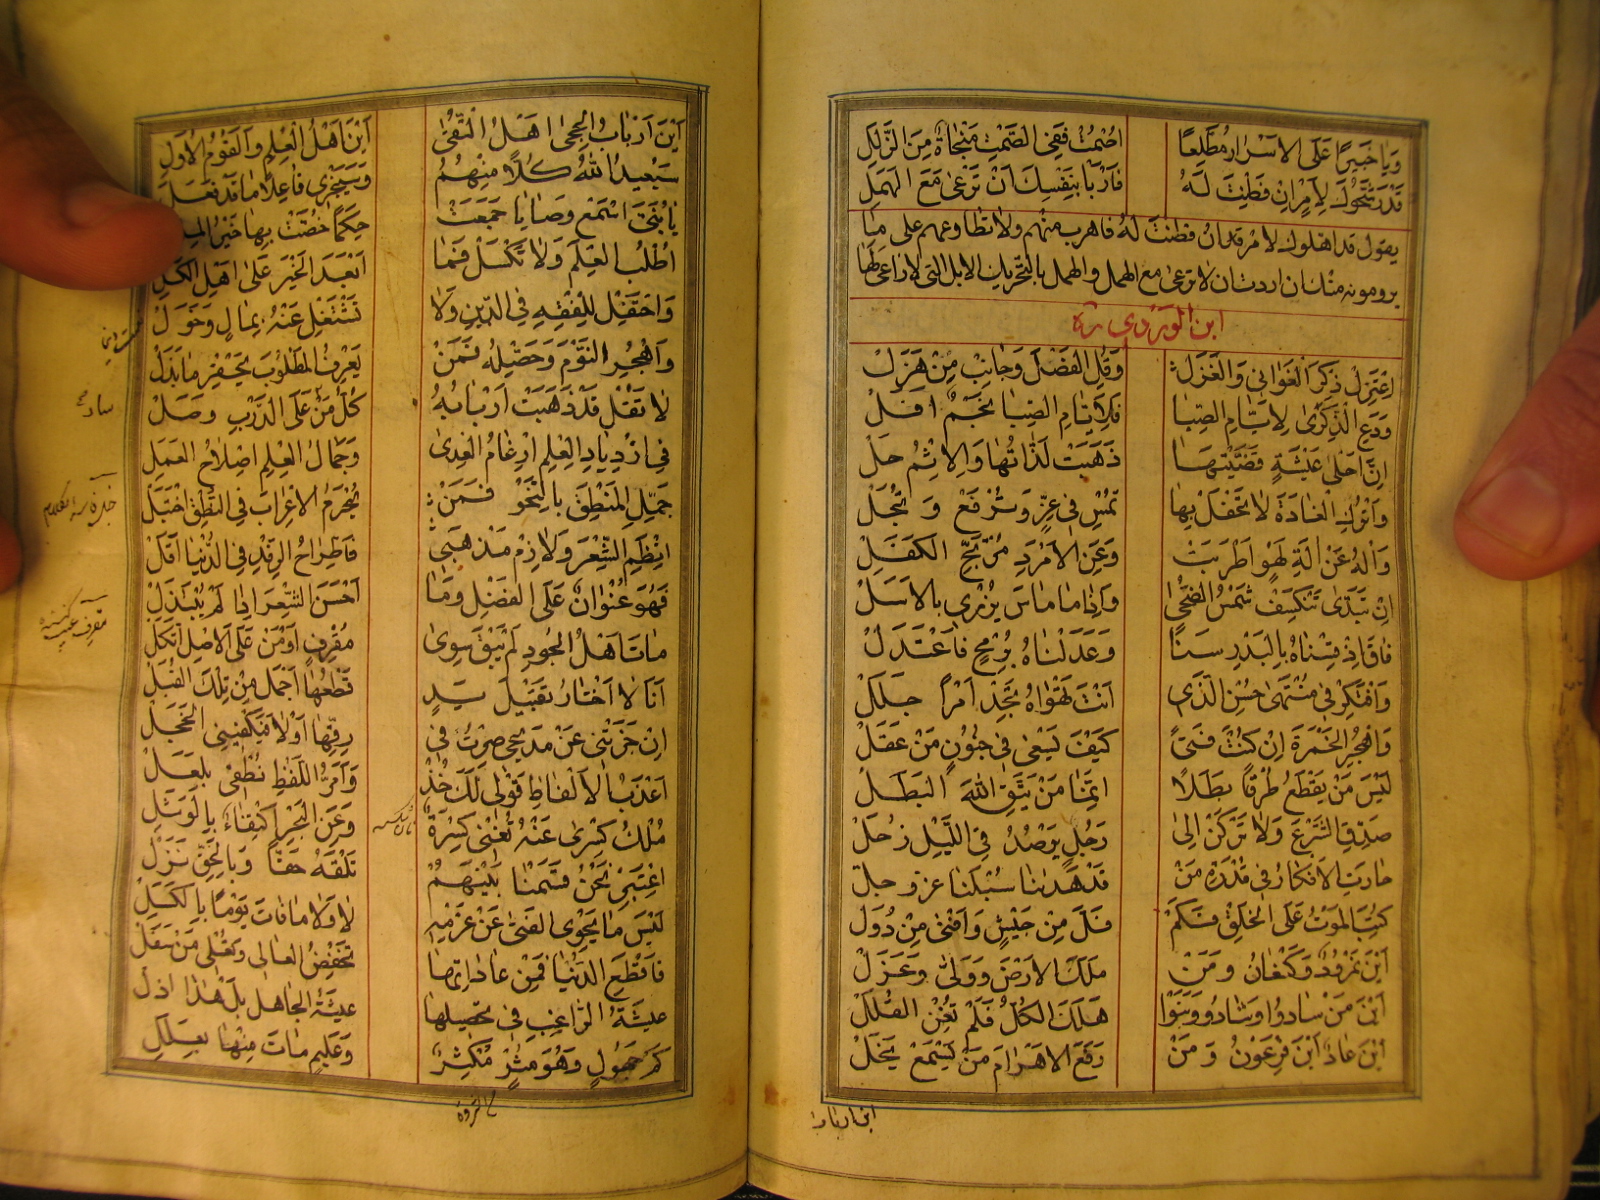 وَيَا خَبِيرًا عَلَى الاَسْرَارِ مُطَّلِعًا اُصْمُتْ فَفِي الصَّمْتِ مَنْجَاةٌ مِنَ الزَّلَلِ
قَدْ رَشَّحُوكَ لِاَمْرٍ اِنْ فَطِنْتَ لَهُ فَارْبَأْ بِنَفْسِكَ اَنْ تَرْعٰى مَعَ الْهَمَلِ
يقول قد اهلوك لامر فان فطنت له فاهرب منهم ولا تطاوعهم على ما
يرومونه منك ان اردت ان لا ترعى مع الهمل والهمل بالتحريك الابل التى لا راعى لها
ابن الوردي ره
اِعْتَزِلْ ذِكْرَ الْغَوَانِي وَالْغَزَلْ وَقُلِ الْفَضْلَ وَجَانِبْ مَنْ هَزَلْ
وَدَعِ الذِّكْرٰى لِاَيَّامِ الصِّبَا فَلِاَيَّامِ الصِّبَا نَجْمٌ اَفَلْ
اِنَّ اَحْلٰى عِيْشَةٍ قَضَّيْتَهَا ذَهَبَتْ لَذَّاتُهَا وَالْاِثْمُ حَلْ
وَاتْرُكِ الْغَادَةَ لَا تَحْفَلْ بِهَا تُمْسِ فِي عِزٍّ وَتُرْفَعْ وَتُجَلْ
وَالْهُ عَنْ اٰلَةِ لَهْوٍ اَطْرَبَتْ وَعَنِ الْاَمْرَدِ مُرْتَجِّ الْكَفَلْ
اِنْ تَبَدّٰى تَنْكَسِفْ شَمْسُ الضُّحٰى وَاِذَا مَا مَاسَ يُزْرِى بِالْاَسَلْ
فَاقَ اِذْ قِسْنَاهُ بِالْبَدْرِ سَنًا وَعَدَلْنَاهُ بِرُمْحٍ فَاعْتَدَلْ
وَافْتَكِرْ فِى مُنْتَهٰى حُسْنِ الَّذِى اَنْتَ تَهْوَاهُ تَجِدْ اَمْرًا جَلَلْ
وَاهْجُرِ الْخَمْرَةَ اِنْ كُنْتَ فَتًى كَيْفَ يَسْعٰى فِى جُنُونٍ مَنْ عَقَلْ
لَيْسَ مَنْ يَقْطَعُ طُرْقًا بَطَلًا اِنَّمَا مَنْ يَتَّقِ اللهَ الْبَطَلْ
صَدِّقِ الشَّرْعَ وَلَا تَرْكَنْ اِلٰى رَجُلٍ يَرْصُدُ فِى اللَّيْلِ زُحَلْ
حَارَتِ الْاَفْكَارُ فِى قُدْرَةِ مَنْ قَدْ هَدَانَا سُبْلَنَا عز و جل
كَتَبَ الْمَوْتَ عَلَى الْخَلْقِ فَكَمْ فَلَّ مِنْ جَيْشٍ وَاَفْنٰى مِنْ دُوَلْ
اَيْنَ نَمْرُودُ وَكَنْعَانُ وَمَنْ مَلَكَ الْاَرْضَ وَوَلّٰى وَعَزَلْ
اَيْنَ مَنْ سَادُوا وَشَادُوا وَبَنَوْا هَلَكَ الْكُلُّ فَلَمْ تُغْنِ الْقُلَلْ
اَيْنَ عَادٌ اَيْنَ فِرْعَوْنُ وَمَنْ رَفَعَ الْاَهْرَامَ مَنْ يَسْمَعْ يَخَلْ
اين ارباب
اَيْنَ اَرْبَابُ الْحِجٰى اَهْلُ التُّقٰى اَيْنَ اَهْلُ الْعِلْمِ وَالْقَوْمُ الْاُوَلْ
سَيُعِيدُ اللهُ كُلًّا مِنْهُمُ وَسَيَجْزِى فَاعِلًا مَا قَدْ فَعَلْ
يَا بُنَىَّ اسْتَمِعْ وَصَايَا جَمَعَتْ حِكَمًا خُصَّتْ بِهَا خَيْرُ
اُطْلُبِ الْعِلْمَ وَلَا تَكْسَلْ فَمَا اَبْعَدَ الْخَيْرَ عَلٰى اَهْلِ الْكَسَلْ
وَاحْتَفِلْ لِلْفِقْهِ فِى الدِّينِ وَلَا تَشْتَغِلْ عَنْهُ بِمَالٍ وَخَوَلْ
وَاهْجُرِ النَّوْمَ وَحَصِّلْهُ فَمَنْ يَعْرِفِ الْمَطْلُوبَ يَحْقِرْ مَا بَذَلْ
لَا تَقُلْ قَدْ ذَهَبَتْ اَرْبَابُهُ كُلُّ مَنْ عَلَى الدَّرْبِ وَصَلْ
فِى ازْدِيَادِ الْعِلْمِ اِرْغَامُ الْعِدٰى وَجَمَالُ الْعِلْمِ اِصْلَاحُ الْعَمَلْ
جَمِّلِ الْمَنْطِقَ بِالنَّحْوِ فَمَنْ يُحْرَمُ الْاِعْرَابَ فِى النُّطْقِ اخْتَبَلْ
اُنْظُمِ الشِّعْرَ وَلَازِمْ مَذْهَبِى فَاطِّرَاحُ الرِّفْدِ فِى الدُّنْيَا اَقَلْ
فَهْوَ عُنْوَانٌ عَلَى الْفَضْلِ وَمَا اَحْسَنَ الشِّعْرَ اِذَا لَمْ يُبْتَذَلْ
مَاتَ اَهْلُ الْجُودِ لَمْ يَبْقَ سِوٰى مُقْرِفٍ اَوْ مَنْ عَلَى الْاَصْلِ اتَّكَلْ
اَنَا لَا اَخْتَارُ تَقْبِيلَ يَدٍ قَطْعُهَا اَجْمَلُ مِنْ تِلْكَ الْقُبَلْ
اِنْ جَزَتْنِى عَنْ مَدِيحِى صِرْتُ فِى رِقِّهَا اَوْ لَا فَيَكْفِينِى الْخَجَلْ
اَعْذَبُ الْاَلْفَاظِ قَوْلِى لَكَ خُذْ وَاَمَرُّ اللَّفْظِ نُطْقِى بِلَعَلْ
مُلْكُ كِسْرٰى عَنْهُ تُغْنِى كِسْرَةٌ وَعَنِ الْبَحْرِ اكْتِفَاءٌ بِالْوَشَلْ
اِعْتَبِرْ نَحْنُ قَسَمْنَا بَيْنَهُمْ تَلْقَهُ حَقًّا وَبِالْحَقِّ نَزَلْ
لَيْسَ مَا يَحْوِى الْفَتٰى عَنْ عَزْمِهِ لَا وَلَا مَا فَاتَ يَوْمًا بِالْكَسَلْ
فَاقْطَعِ الدُّنْيَا فَمِنْ عَادَاتِهَا تَخْفِضُ الْعَالِى وَتُعْلِى مَنْ سَفَلْ
عِيشَةُ الرَّاغِبِ فِى تَحْصِيلِهَا عِيشَةُ الْجَاهِلِ بَلْ هٰذَا اَذَلْ
كَمْ جَهُولٍ وَهْوَ مُثْرٍ مُكْثِرٌ وَعَلِيمٍ مَاتَ مِنْهَا بِعِلَلْ